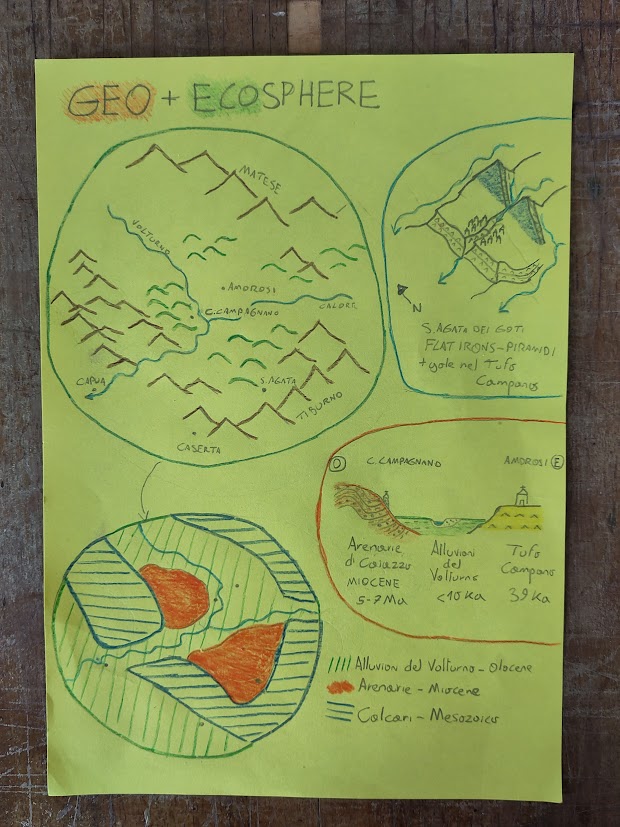 GEO + ECOSPHERE
MATESE
VOLTURNO
AMOROSI
C.CAMPAGNANO
CALORE
CAPUA
S.AGATA
TIBURNO
CASERTA
N
S. AGATA DEI GOTI
FLAT IRONS - PIRAMIDI
+ gole nel Tufo
Campano
O C. CAMPAGNANO AMOROSI E
Arenarie Alluvioni Tufo
di Caiazzo del Campano
MIOCENE Volturno 39 Ka
5-7 Ma <10 Ka
Alluvioni del Volturno - Olocene
Arenarie - Miocene
Calcari - Mesozoico